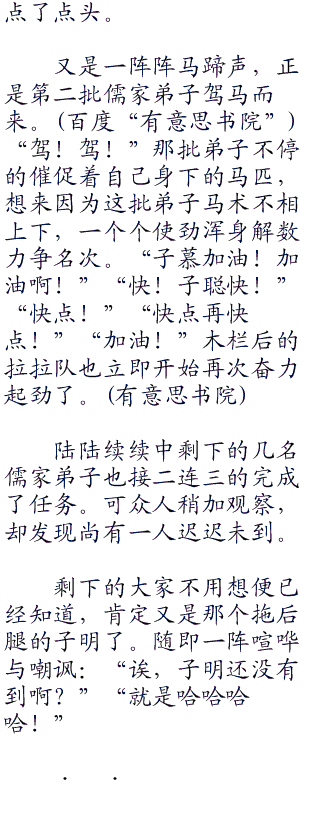 点了点头。
又是一阵阵马蹄声，正
是第二批儒家弟子驾马而
来。(百度“有意思书院”)
“驾！驾！”那批弟子不停
的催促着自己身下的马匹，
想来因为这批弟子马术不相
上下，一个个使劲浑身解数
力争名次。“子慕加油！加
油啊！”“快！子聪快！”
“快点！”“快点再快
点！”“加油！”木栏后的
拉拉队也立即开始再次奋力
起劲了。(有意思书院)
陆陆续续中剩下的几名
儒家弟子也接二连三的完成
了任务。可众人稍加观察，
却发现尚有一人迟迟未到。
剩下的大家不用想便已
经知道，肯定又是那个拖后
腿的子明了。随即一阵喧哗
与嘲讽：“诶，子明还没有
到啊？”“就是哈哈哈
哈！”
. .